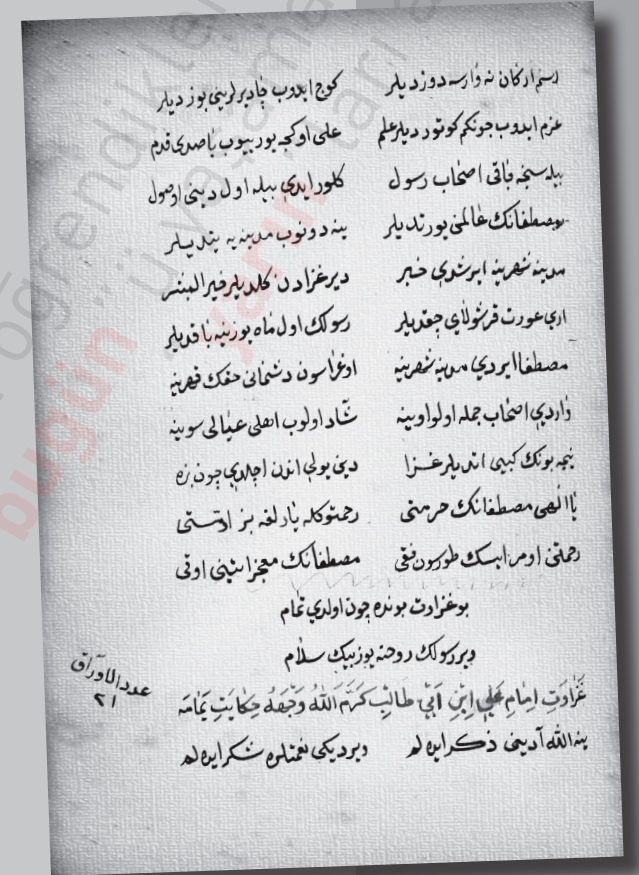 رسم اركان نه وارسه دوزديلر كوچ ايدوب چاديرلريني بوزديلر
عزم ايدوب چونكم كوتورديلر علم علي اوكجه يوريوب باصدى قدم
بيله سنجه باقى اصحاب رسول كلور ايدي بيله اول ديني اصول
مصطفانك عالمنى يورتديلر ينه دونوب مدينه يه يتديلر
مدينه شهرينه ايرشدي خبر دير غزادن كلديلر خير البشر
اري عورت قرشولاي چقديلر رسولك اول ماه يوزينه باقديلر
مصطفا ايردي مدينه شهرينه اوغراسون دشمانى حقك قهرينه
واردي اصحاب جمله اولو اوينه شاد اولوب اهلى عيالى سوينه
نيجه بونك كبيى ايتديلر غزا دين يولي اندن اچلدي چون بزه
يا الهى مصطفانك حرمتى رحمتوكله يارلغه بز امتى
رحمتنى اومر ايسك طورسون فقى مصطفانك معجزاتينى اوقى
بو غزاوت بونده چون اولدي تمام
وير رسولك روحنه يوزبيك سلام
عدد الاوراق
٢١
غَزَاوَتِ اِمَامِ عَلِي اِبْنِ اَبِي طَالِبْ كَرَّمَ اللّٰهُ وَجْهَهُ حِكَايَتِ يَمَامَه
ينه الله آديني ذكر ايده لم ويرديكى نعمتلره شكر ايده لم